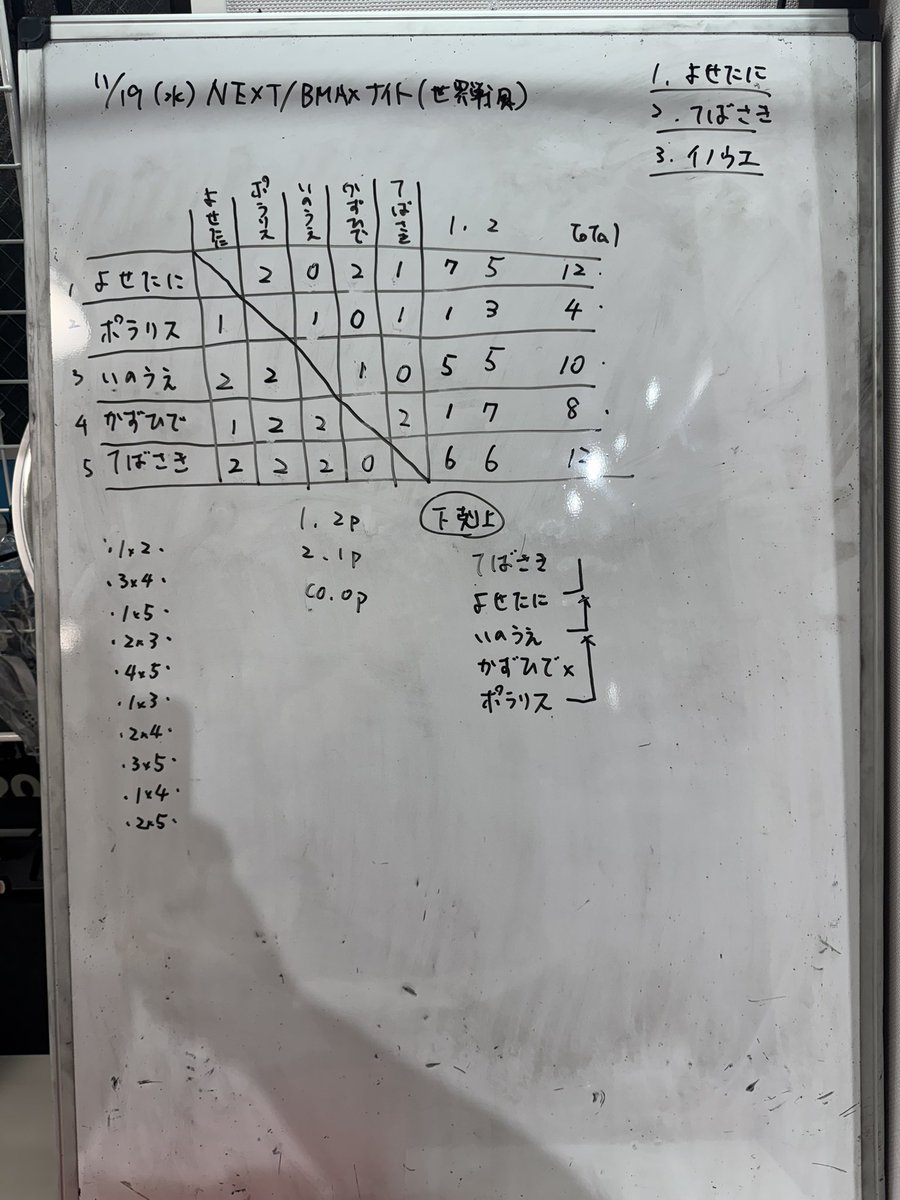 11/19(水) NEXT/BMAXナイト(世界戦風)
1. よせたに
2. てばさき
3. イノウエ
よせたに ポラリス いのうえ かずひで てばさき 1. 2 Total
1 よせたに 2 0 2 1 7 5 12
2 ポラリス 1 1 0 1 1 3 4
3 いのうえ 2 2 1 0 5 5 10
4 かずひで 1 2 2 2 1 7 8
5 てばさき 2 2 2 0 6 6
1. 2P
2. 1P
CO. 0P
・1×2・
・3×4・
・1×5・
・2×3・
・4×5・
・1×3・
・2×4・
・3×5・
・1×4・
・2×5・
下剋上
てばさき
よせたに
いのうえ
かずひで×
ポラリス